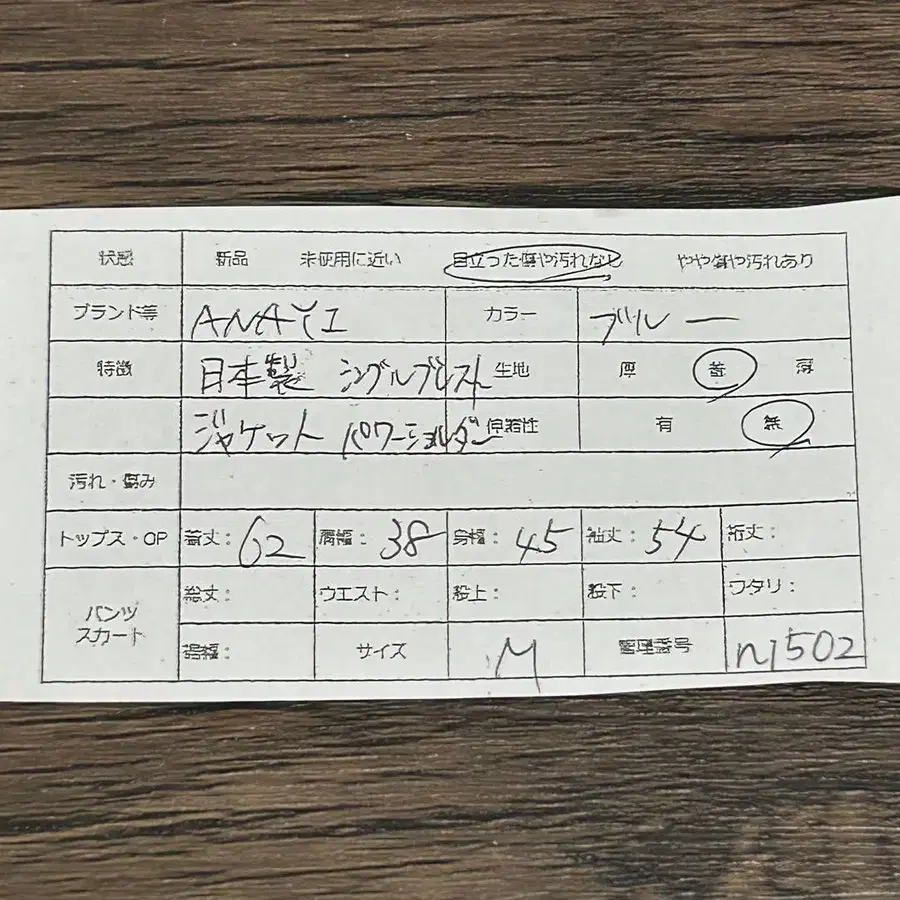 状態 新品 未使用に近い 目立った傷や汚れなし やや傷や汚れあり
ブランド等 ANAYI カラー ブルー
特徴 日本製 シングルブレスト 生地 厚 普 薄
ジャケット パワーショルダー 伸縮性 有 無
汚れ・傷み
トップス・OP 着丈: 62 肩幅: 38 身幅: 45 袖丈: 54 裄丈:
パンツ スカート 総丈: ウエスト: 股上: 股下: ワタリ:
裾幅: サイズ M 管理番号 n1502